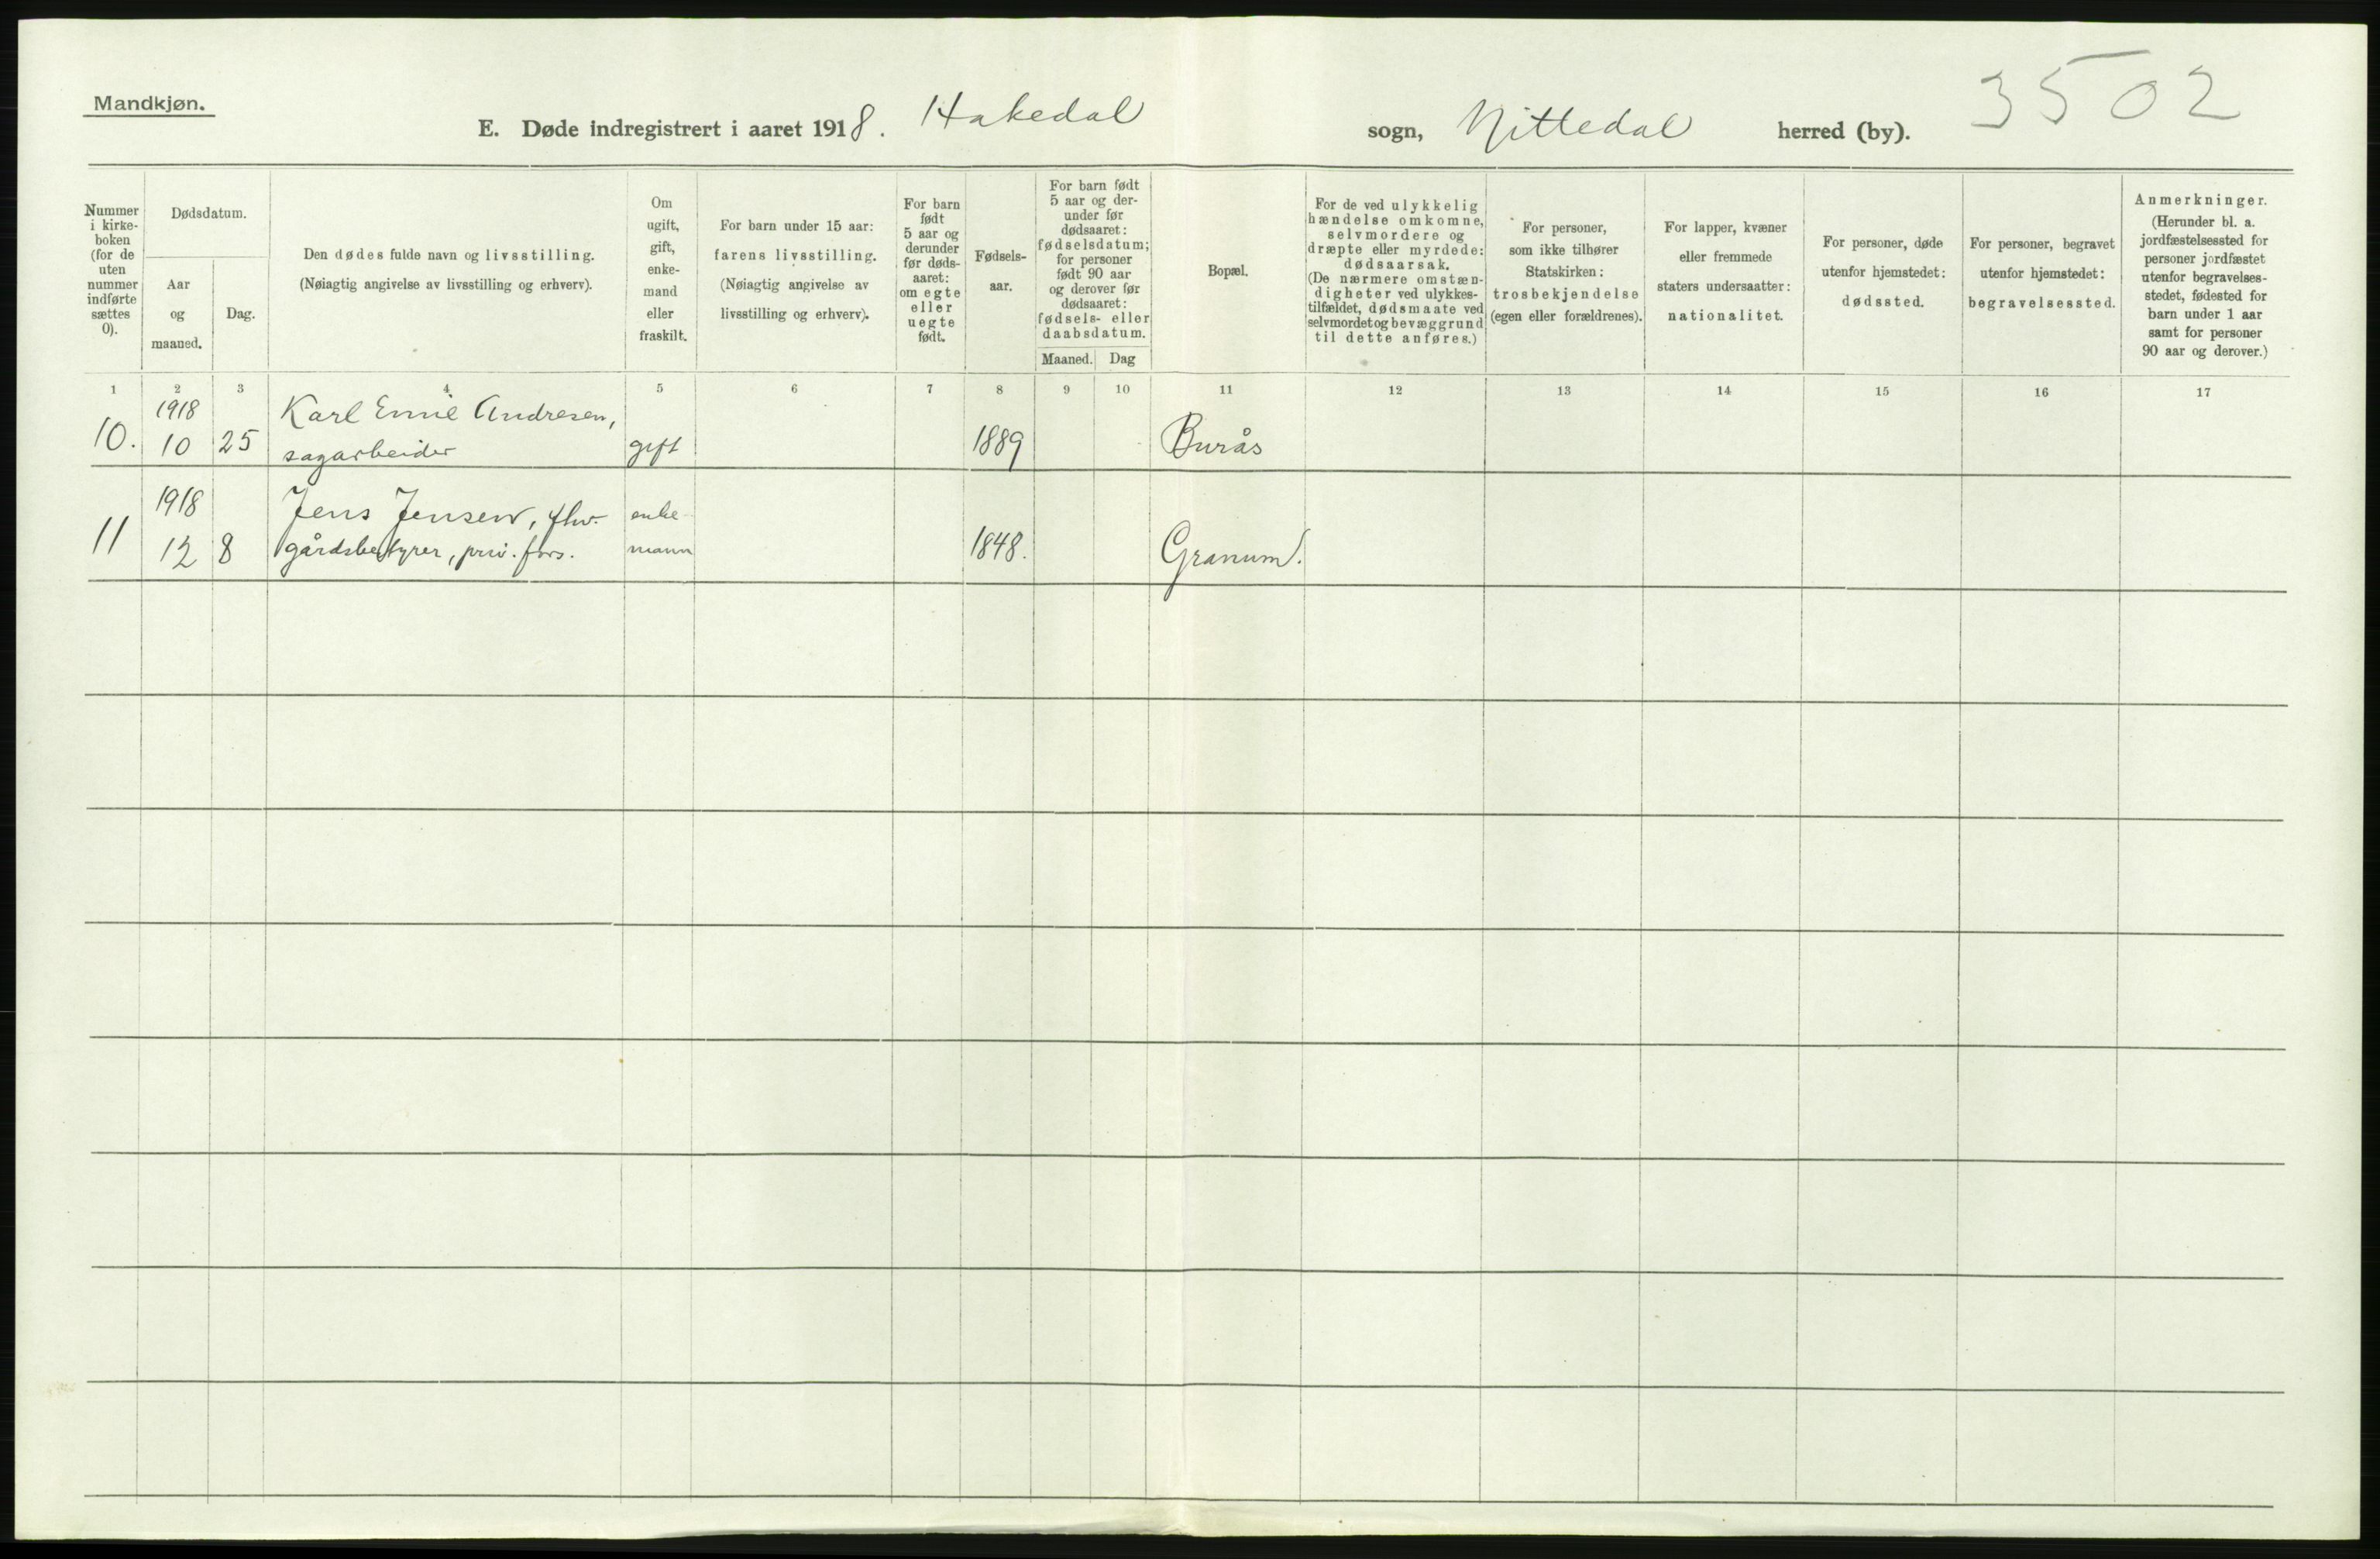 Mandkjøn.
E. Døde indregistrert i aaret 1918. Hakedal sogn, Nittedal herred (by). 3502
Nummer i kirke-boken (for de uten nummer indførte sættes 0).
Dødsdatum.
Aar og maaned.
Dag.
Den dødes fulde navn og livsstilling.
(Nøiagtig angivelse av livsstilling og erhverv).
Om ugift, gift, enke-mand eller fraskilt.
For barn under 15 aar:
farens livsstilling.
(Nøiagtig angivelse av
livsstilling og erhverv).
For barn født 5 aar og derunder før døds-aaret: om egte eller uegte født.
Fødsels-aar.
For barn født 5 aar og der-under før dødsaaret: fødselsdatum; for personer født 90 aar og derover før dødsaaret: fødsels- eller daabsdatum.
Maaned. Dag
Bopæl.
For de ved ulykkelig hændelse omkomne, selvmordere og dræpte eller myrdede: dødsaarsak. (De nærmere omstæn-digheter ved ulykkes-tilfældet, dødsmaate ved selvmordet og bevæggrund til dette anføres.)
For personer, som ikke tilhører Statskirken: trosbekjendelse (egen eller forældrenes).
For lapper, kvæner eller fremmede staters undersaatter: nationalitet.
For personer, døde utenfor hjemstedet: dødssted.
For personer, begravet utenfor hjemstedet: begravelsessted.
Anmerkninger. (Herunder bl. a. jordfæstelsessted for personer jordfæstet utenfor begravelses-stedet, fødested for barn under 1 aar samt for personer 90 aar og derover.)
1 2 3 4 5 6 7 8 9 10 11 12 13 14 15 16 17
1918 Karl Emil Andresen,
10. 10 25 sagarbeider gift 1889 Burås
1918 Jens Jensen, fhv. enke-
11 12 8 gårdsbestyrer, priv. fors. mann 1848. Granum.